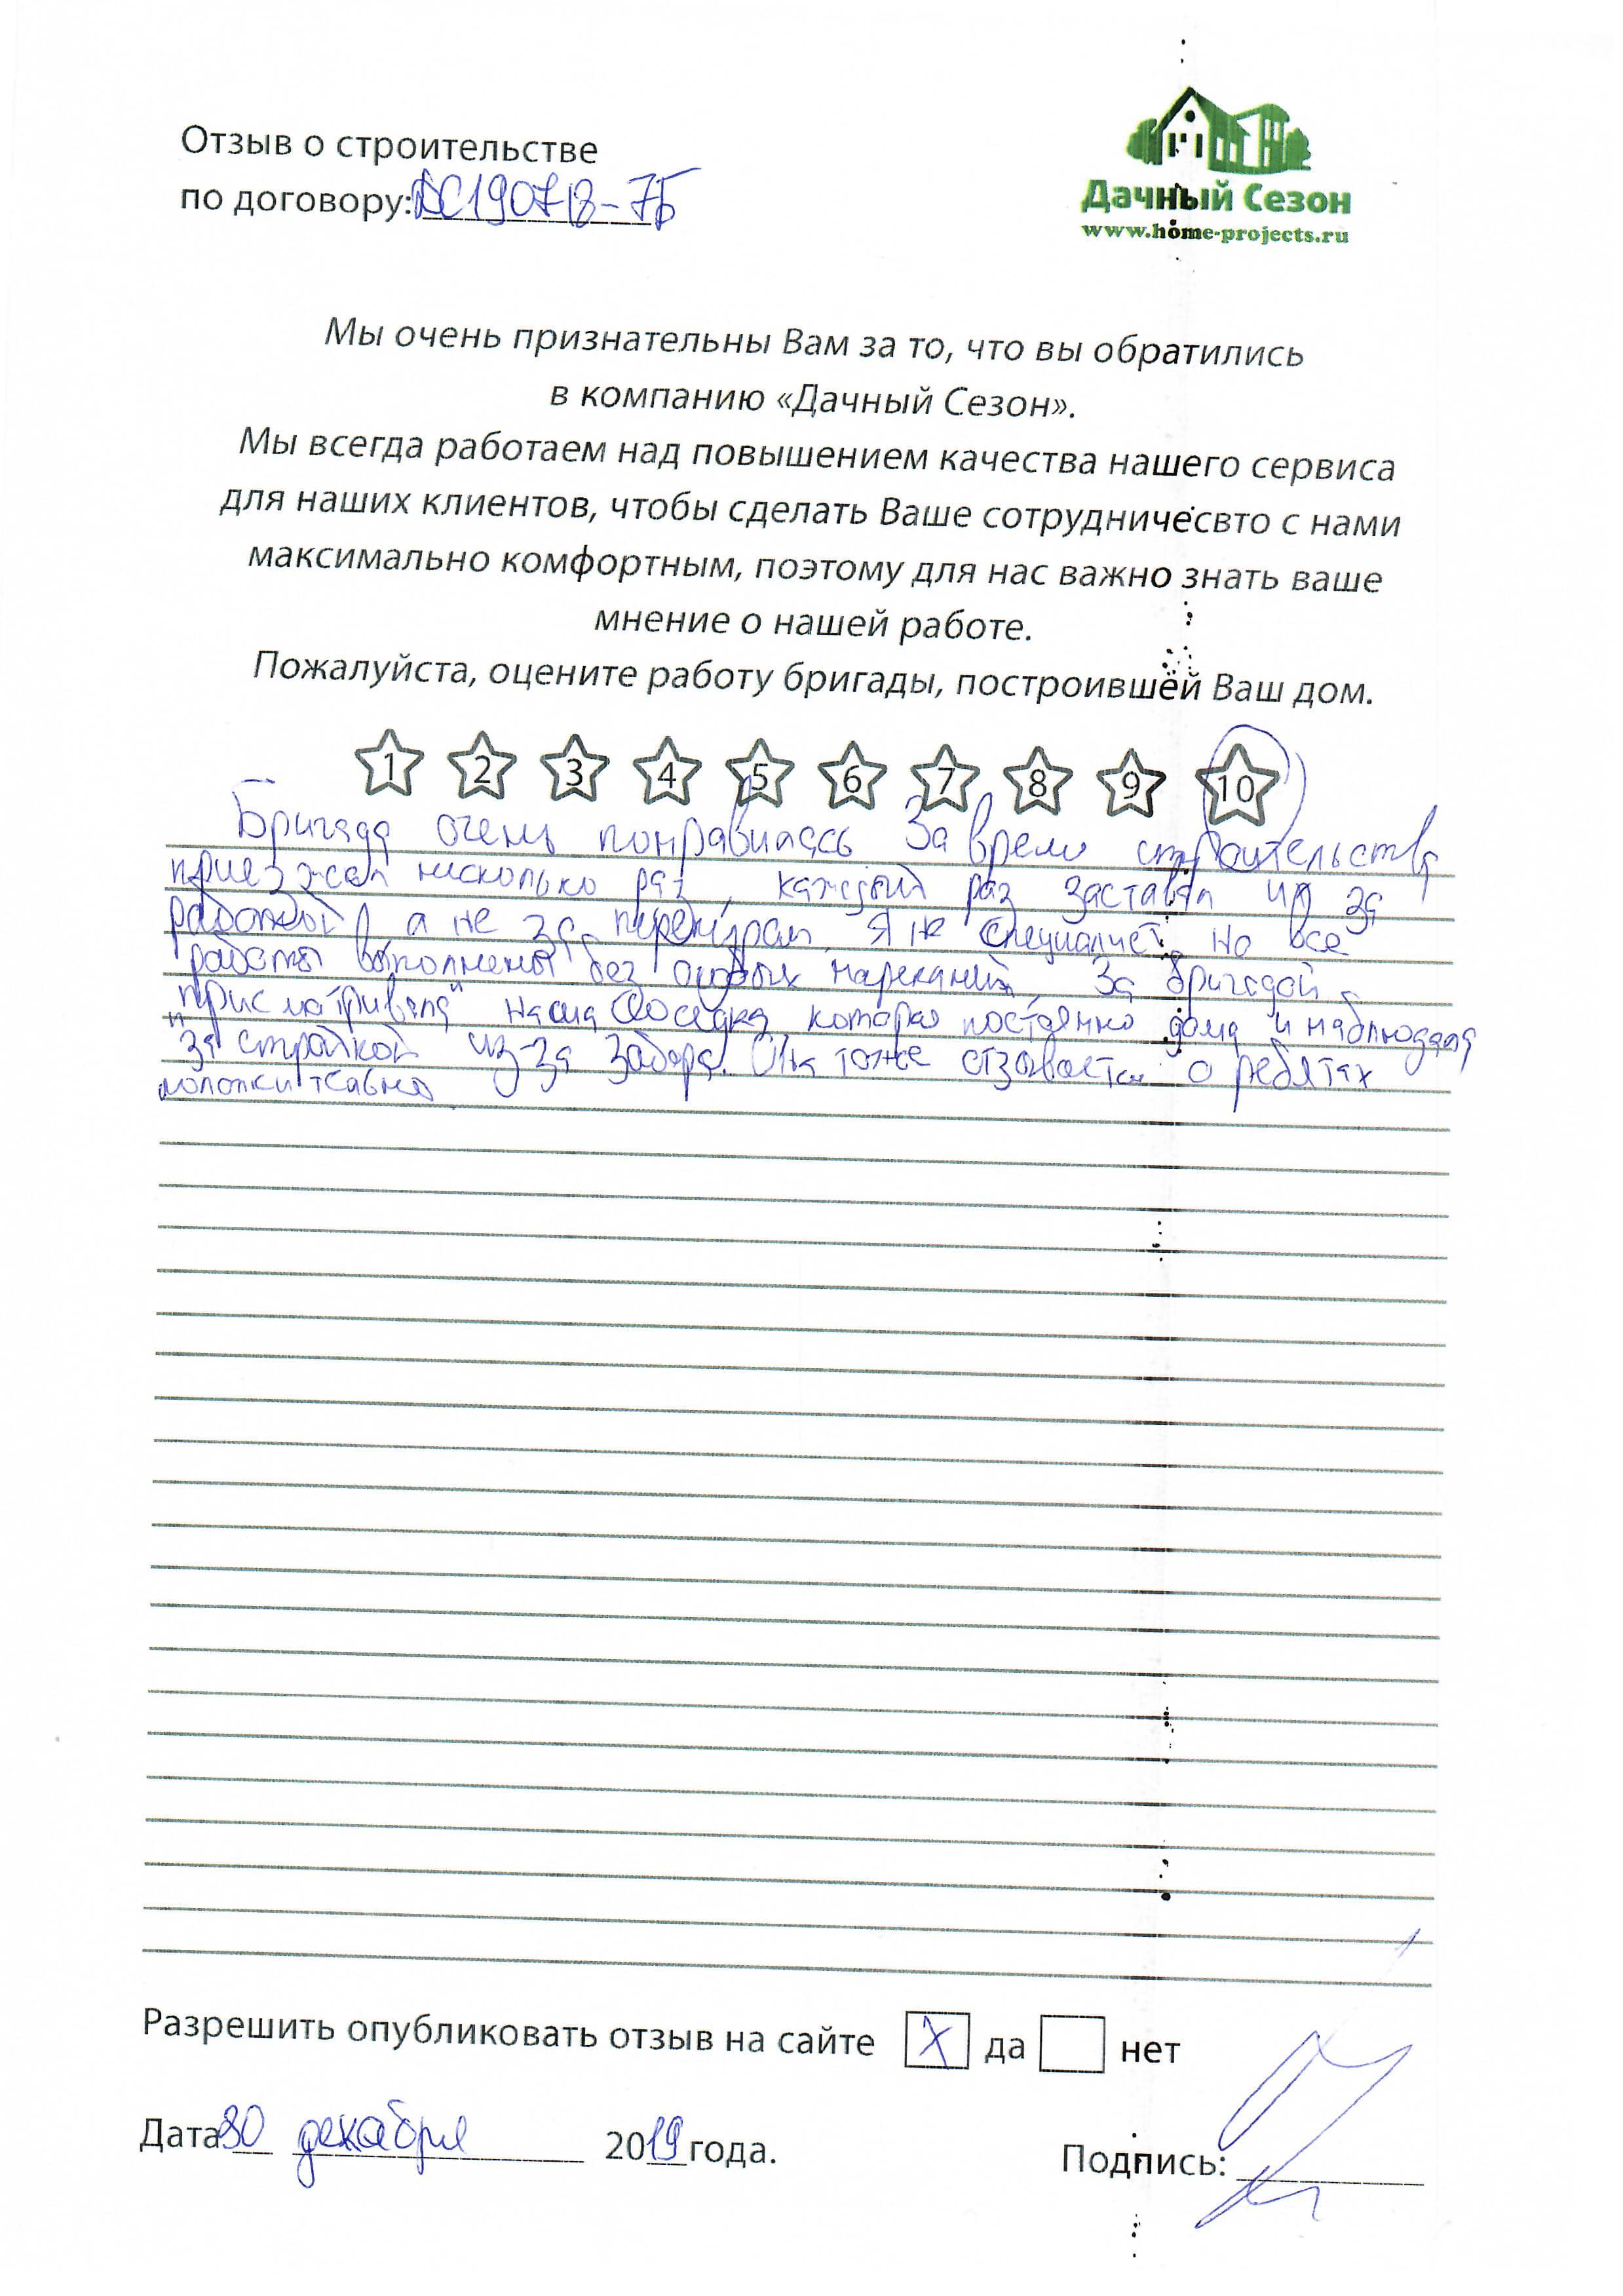 Отзыв о строительстве
по договору: ДС190718-7Б
Дачный Сезон
www.home-projects.ru
Мы очень признательны Вам за то, что вы обратились
в компанию «Дачный Сезон».
Мы всегда работаем над повышением качества нашего сервиса
для наших клиентов, чтобы сделать Ваше сотрудничесвто с нами
максимально комфортным, поэтому для нас важно знать ваше
мнение о нашей работе.
Пожалуйста, оцените работу бригады, построившей Ваш дом.
1 2 3 4 5 6 7 8 9 10
Бригада очень понравилась За время строительства
приезжал несколько раз, каждый раз заставал их за
работой, а не за перекуром. Я не специалист, но все
работы выполнены без особых нареканий. За бригадой
"присматривала" наша соседка которая постоянно дома и наблюдала
за стройкой из-за забора. Она тоже отзывается о ребятах